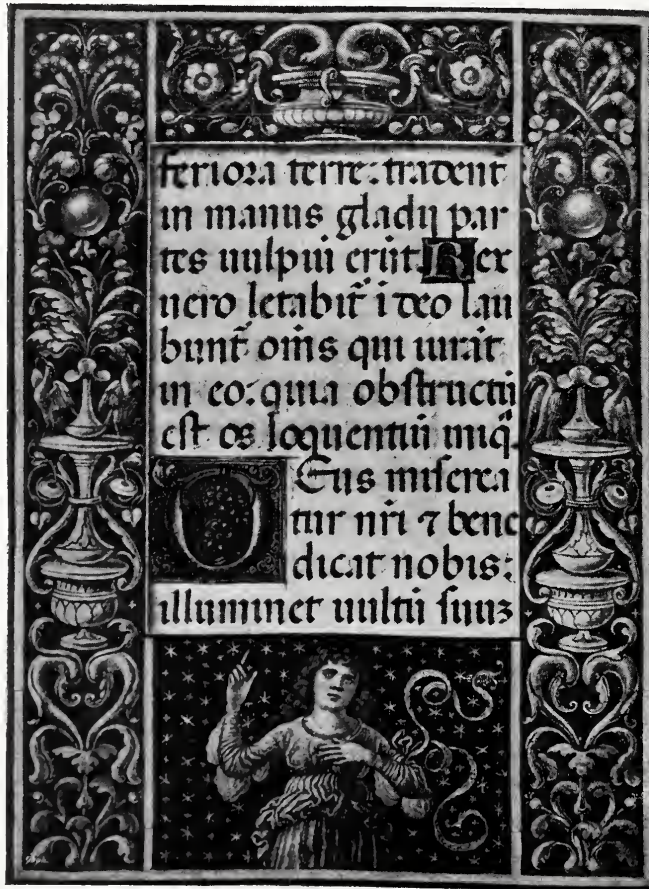 feriora terre: tradent
in manus gladii par
tes uulpiū erūt. Rex
uero letabit̃ ī deo lau
bunt̃ om̃s qui iurāt
in eo: quia obstructū
est os loquentiū iniq̃
Deus miserea
tur nr̃i ⁊ bene
dicat nobis:
illuminet uultū suuꝫ